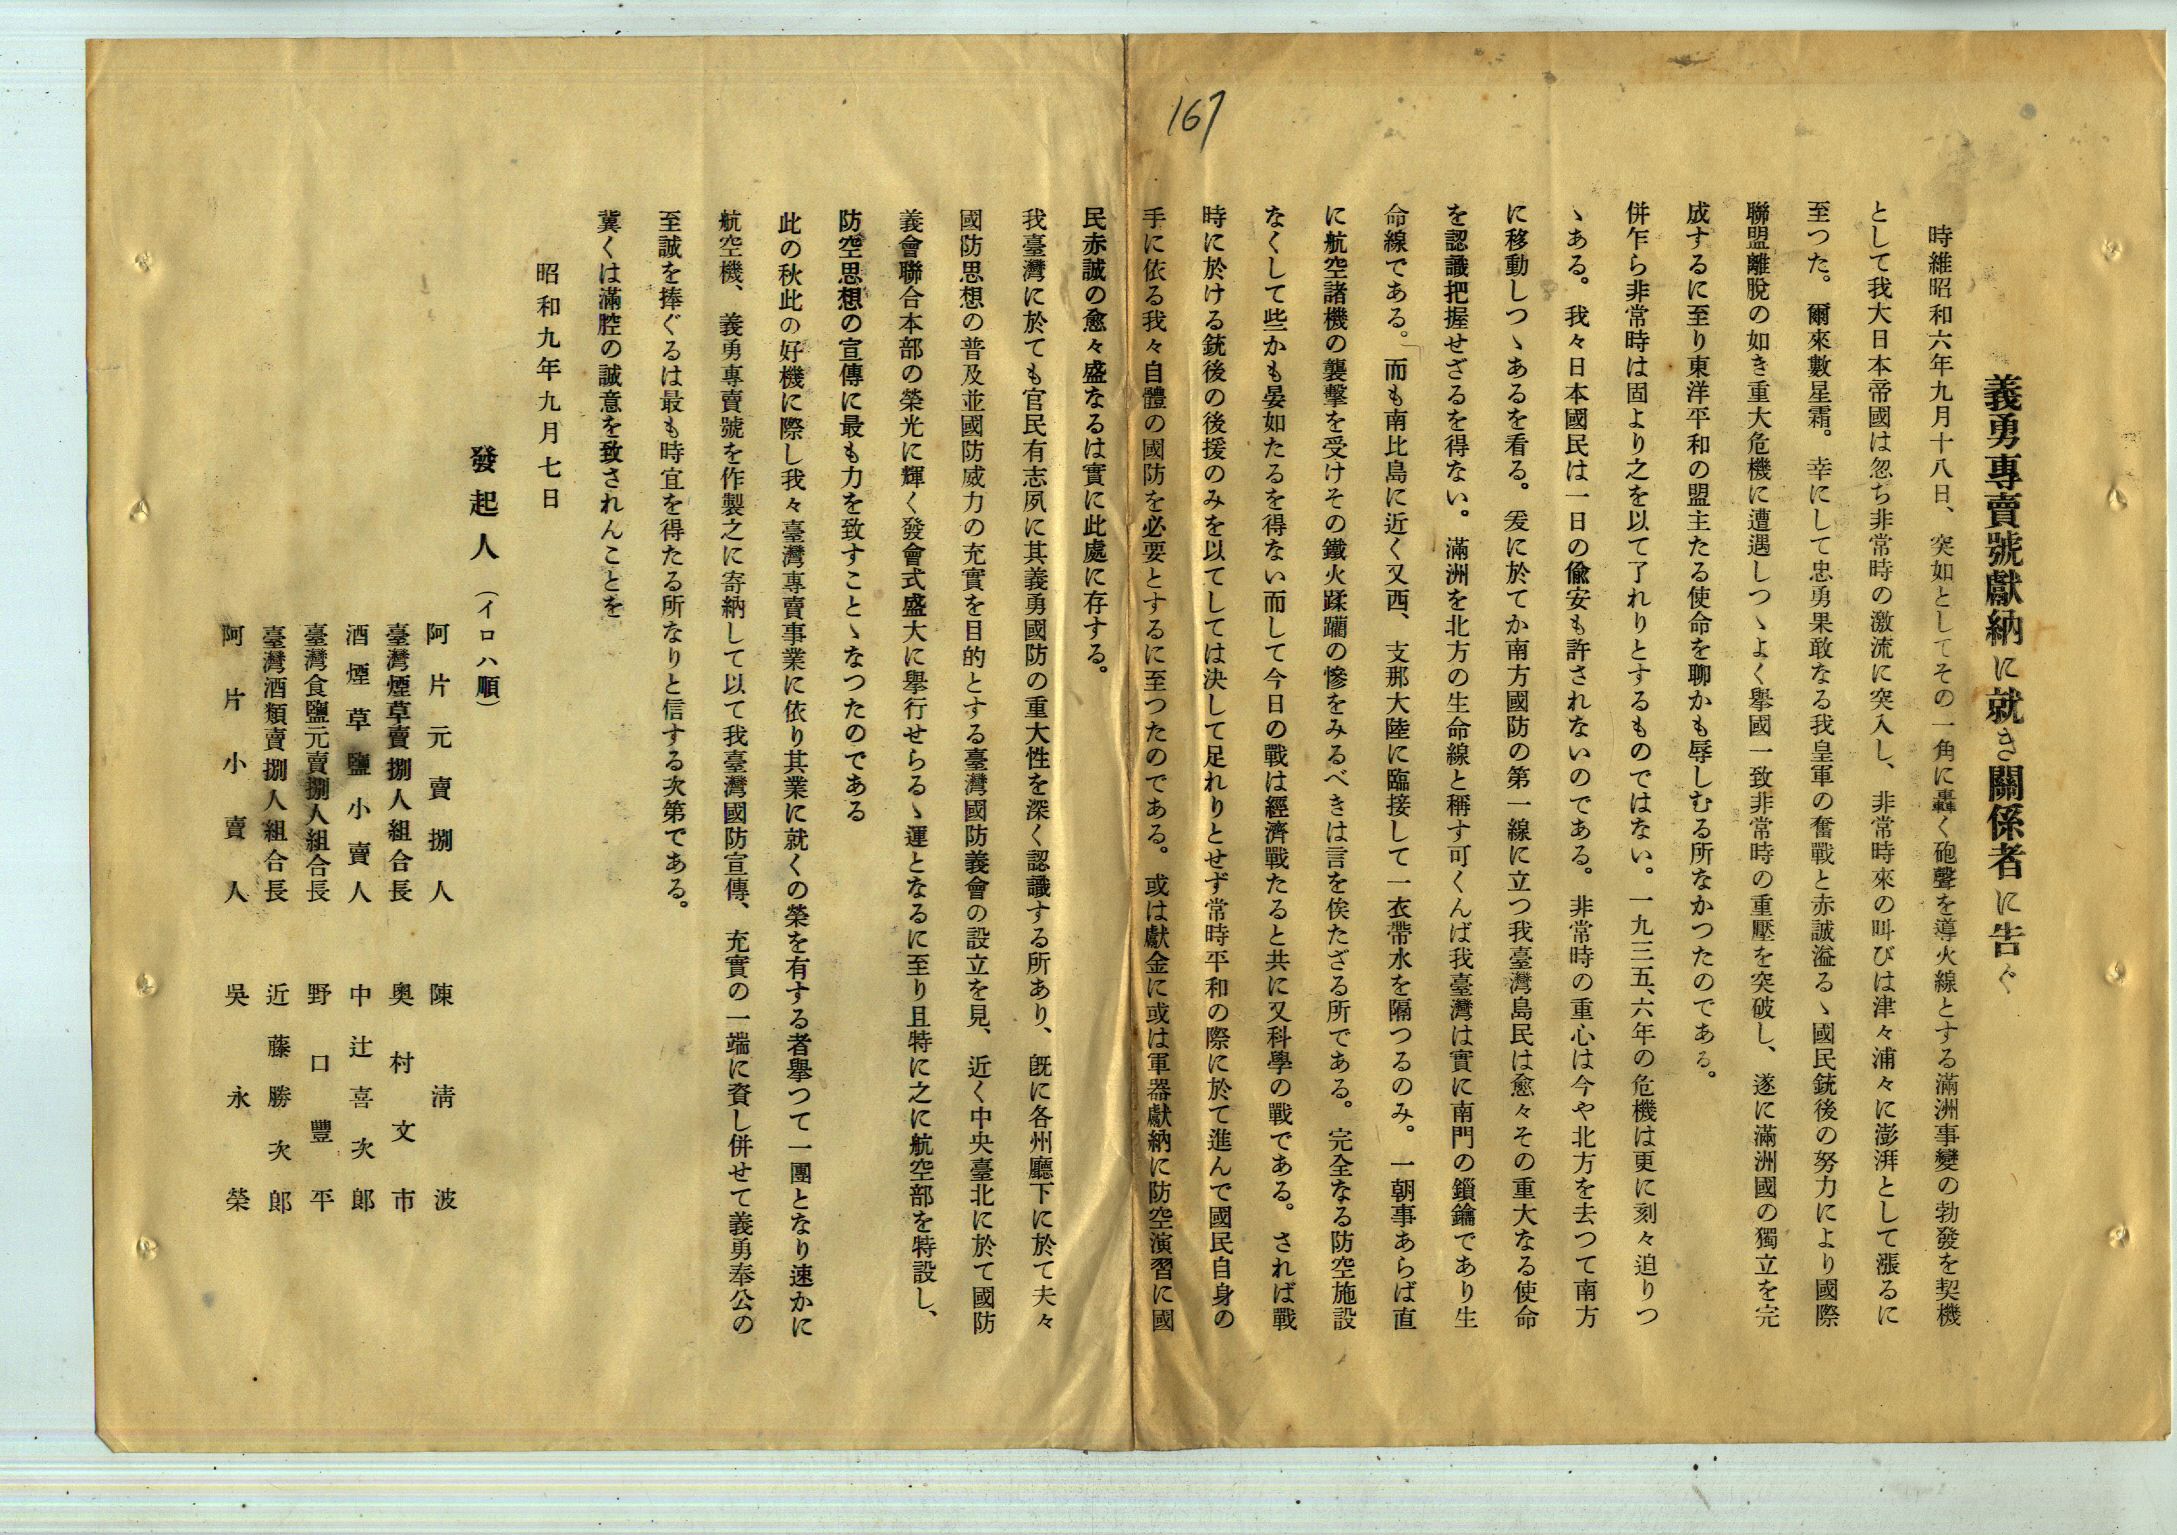 167
義勇專賣號獻納に就き關係者に告ぐ
時維昭和六年九月十八日、突如としてその一角に轟く砲聲を導火線とする滿洲事變の勃發を契機
として我大日本帝國は忽ち非常時の激流に突入し、非常時來の叫びは津々浦々に澎湃として漲るに
至つた。爾來數星霜。幸にして忠勇果敢なる我皇軍の奮戰と赤誠溢るゝ國民銃後の努力により國際
聯盟離脫の如き重大危機に遭遇しつゝよく擧國一致非常時の重壓を突破し、遂に滿洲國の獨立を完
成するに至り東洋平和の盟主たる使命を聊かも辱しむる所なかつたのである。
併乍ら非常時は固より之を以て了れりとするものではない。一九三五、六年の危機は更に刻々迫りつ
ゝある。我々日本國民は一日の偸安も許されないのである。非常時の重心は今や北方を去つて南方
に移動しつゝあるを看る。爰に於てか南方國防の第一線に立つ我臺灣島民は愈々その重大なる使命
を認識把握せざるを得ない。滿洲を北方の生命線と稱す可くんば我臺灣は實に南門の鎖鑰であり生
命線である。而も南比島に近く又西、支那大陸に臨接して一衣帶水を隔つるのみ。一朝事あらば直
に航空諸機の襲擊を受けその鐵火蹂躪の慘をみるべきは言を俟たざる所である。完全なる防空施設
なくして些かも晏如たるを得ない而して今日の戰は經濟戰たると共に又科學の戰である。されば戰
時に於ける銃後の後援のみを以てしては決して足れりとせず常時平和の際に於て進んで國民自身の
手に依る我々自體の國防を必要とするに至つたのである。或は獻金に或は軍器獻納に防空演習に國
民赤誠の愈々盛なるは實に此處に存する。
我臺灣に於ても官民有志夙に其義勇國防の重大性を深く認識する所あり、旣に各州廳下に於て夫々
國防思想の普及並國防威力の充實を目的とする臺灣國防義會の設立を見、近く中央臺北に於て國防
義會聯合本部の榮光に輝く發會式盛大に擧行せらるゝ運となるに至り且特に之に航空部を特設し、
防空思想の宣傳に最も力を致すことゝなつたのである
此の秋此の好機に際し我々臺灣專賣事業に依り其業に就くの榮を有する者擧つて一團となり速かに
航空機、義勇專賣號を作製之に寄納して以て我臺灣國防宣傳、充實の一端に資し併せて義勇奉公の
至誠を捧ぐるは最も時宜を得たる所なりと信ずる次第である。
冀くは滿腔の誠意を致されんことを
昭和九年九月七日
發起人（イロハ順）
阿片元賣捌人 陳淸波
臺灣煙草賣捌人組合長 奧村文市
酒煙草鹽小賣人 中辻喜次郎
臺灣食鹽元賣捌人組合長 野口豐平
臺灣酒類賣捌人組合長 近藤勝次郎
阿片小賣人 吳永榮